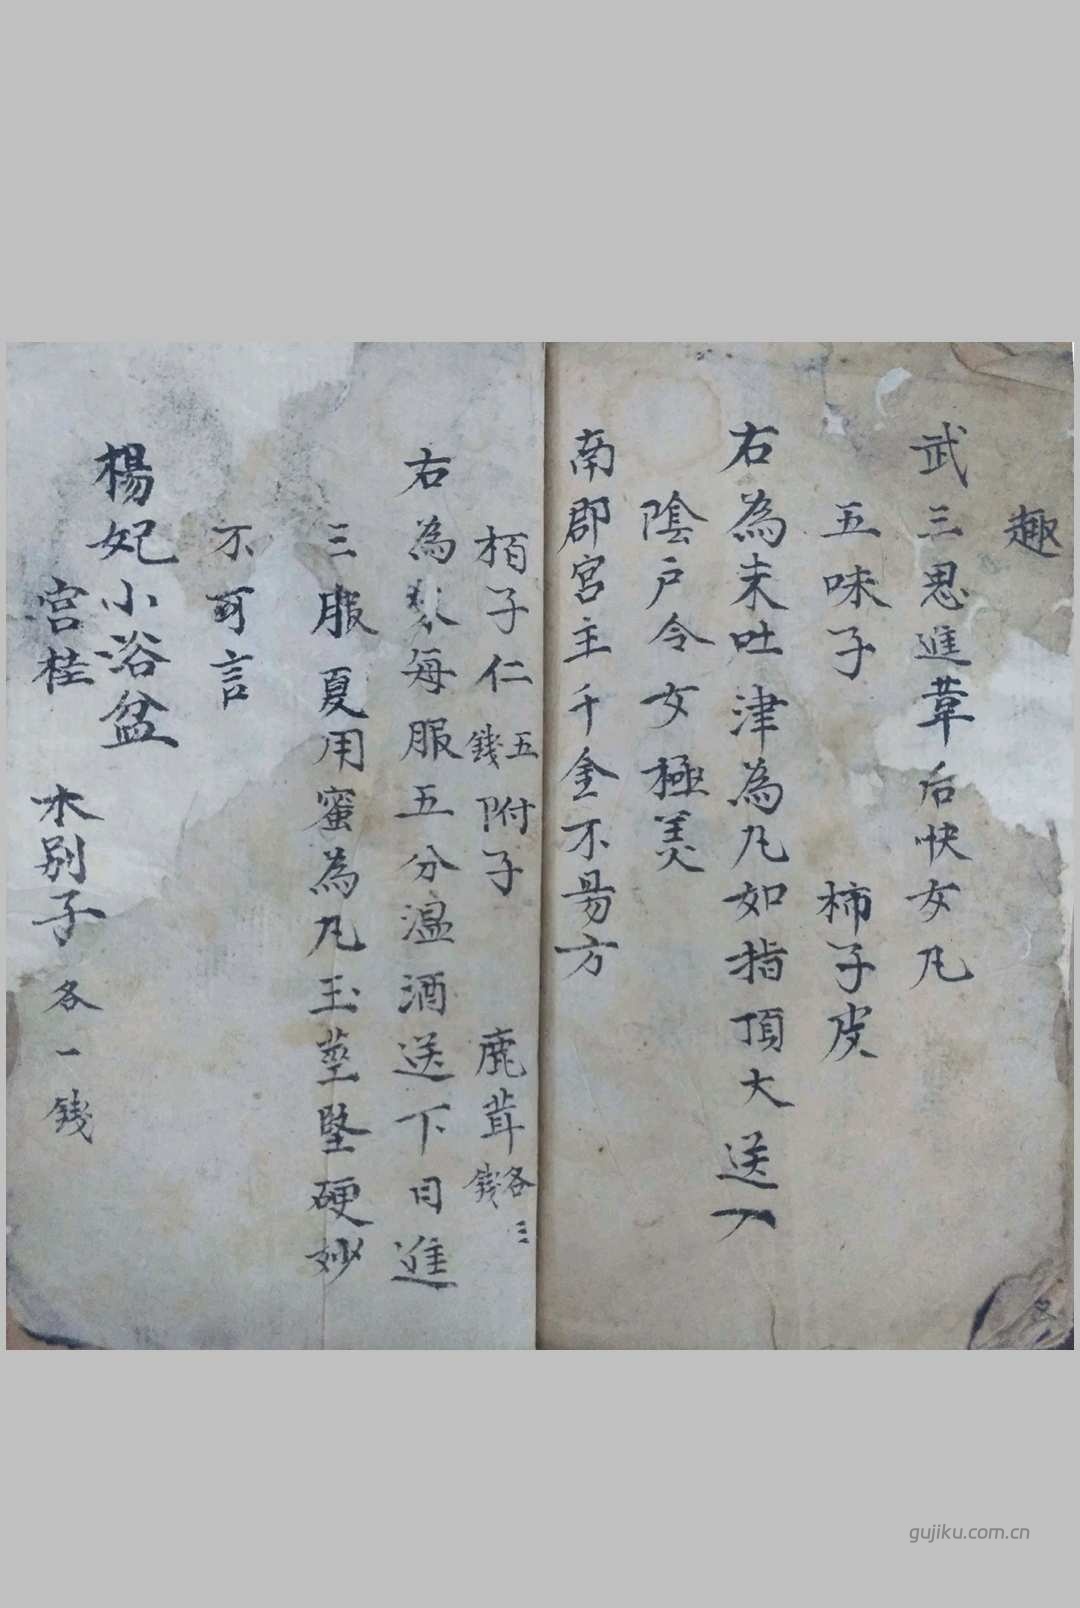 趣
武三思進韋后快女凡
五味子 柿子皮
右為末吐津為凡如指頂大送入
陰户令女極美
南郡宮主千金不易方
栢子仁五錢 附子 鹿茸各三錢
右為每服五分温酒送下日進
三服夏用蜜為凡玉莖堅硬妙
不可言
楊妃小浴盆
宫桂 木别子各一錢
gujiku.com.cn